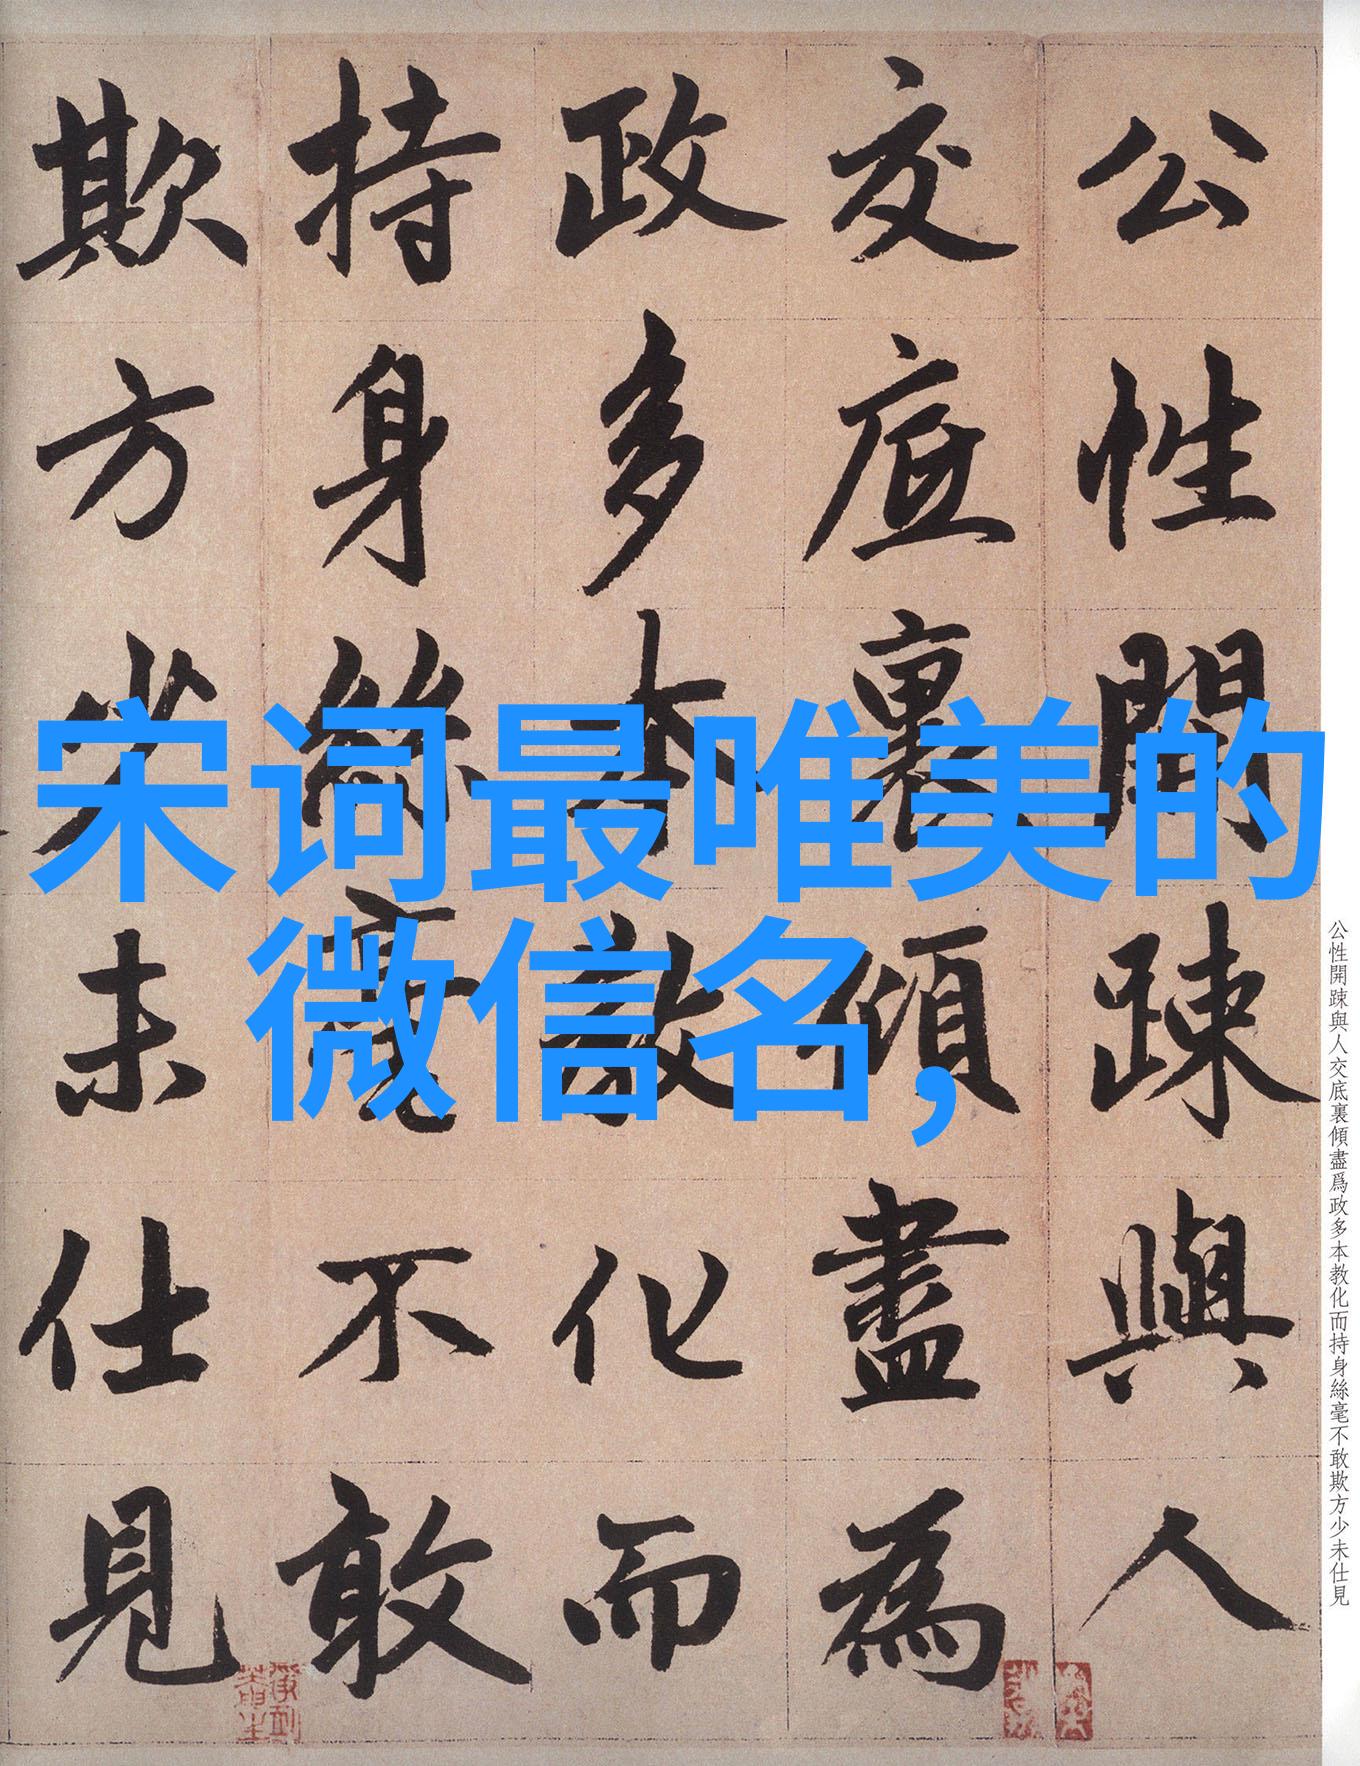 宋词最唯美的
微信名，
公性開踈與人
交底裏傾盡為
政多本教化而
持身絲毫不敢
欺方少未仕見
公性開踈與人交底裏傾盡爲政多本教化而持身絲毫不敢欺方少未仕見